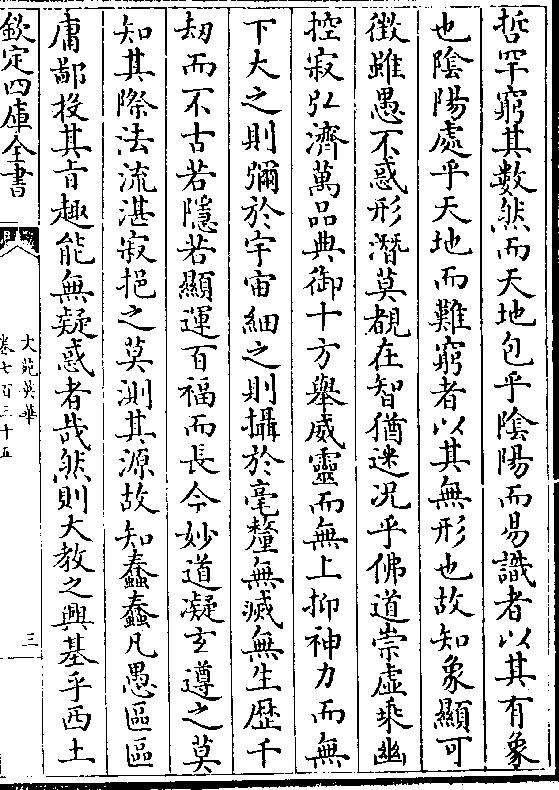 哲罕窮其數然而天地包乎陰陽而易識者以其有象
也陰陽處乎天地而難窮者以其無形也故知象顯可
徴雖愚不惑形潛莫覩在智猶迷况乎佛道崇虚乘幽
控寂弘濟萬品典御十方舉威靈而無上抑神力而無
下大之則彌於宇宙細之則攝於毫釐無滅無生歴千
刼而不古若隱若顯運百福而長今妙道凝玄遵之莫
知其際法流湛寂挹之莫測其源故知蠢蠢凡愚區區
庸鄙投其㫖趣能無疑惑者哉然則大教之興基乎西土
欽定四庫全書
文苑英華
卷七百三十五
三